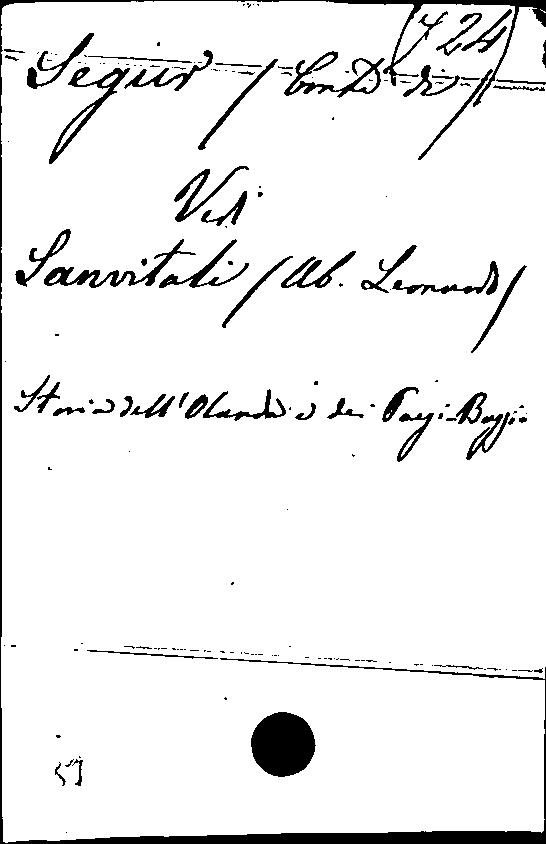 (724)
Segur / Conte di /
Vedi
Sanvitali / Ab. Leonardo /
Storia dell'Olanda e dei Paesi-Bassi